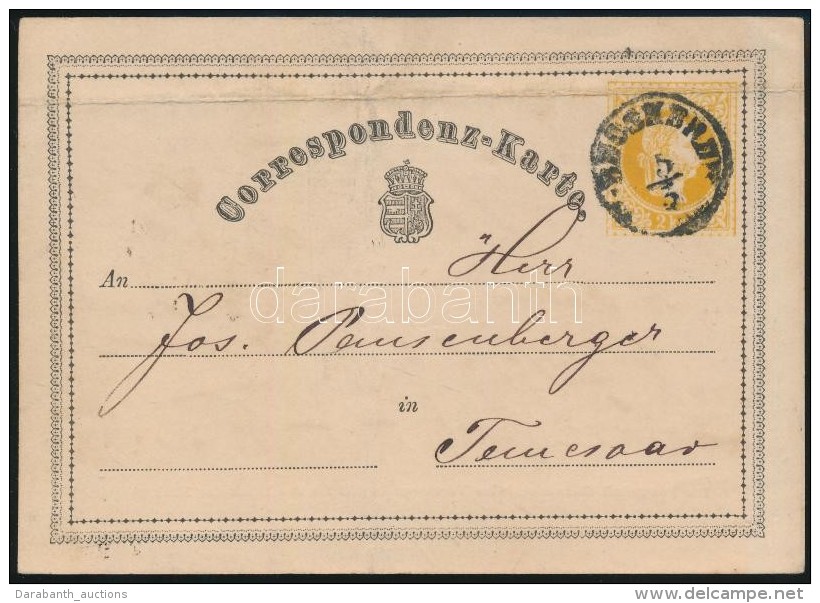 Correspondenz-Karte.
An Herr
Jos. Pausenberger
in
Temesvar
2
5/5
darabanth
Darabanth_auctions
delcampe.net